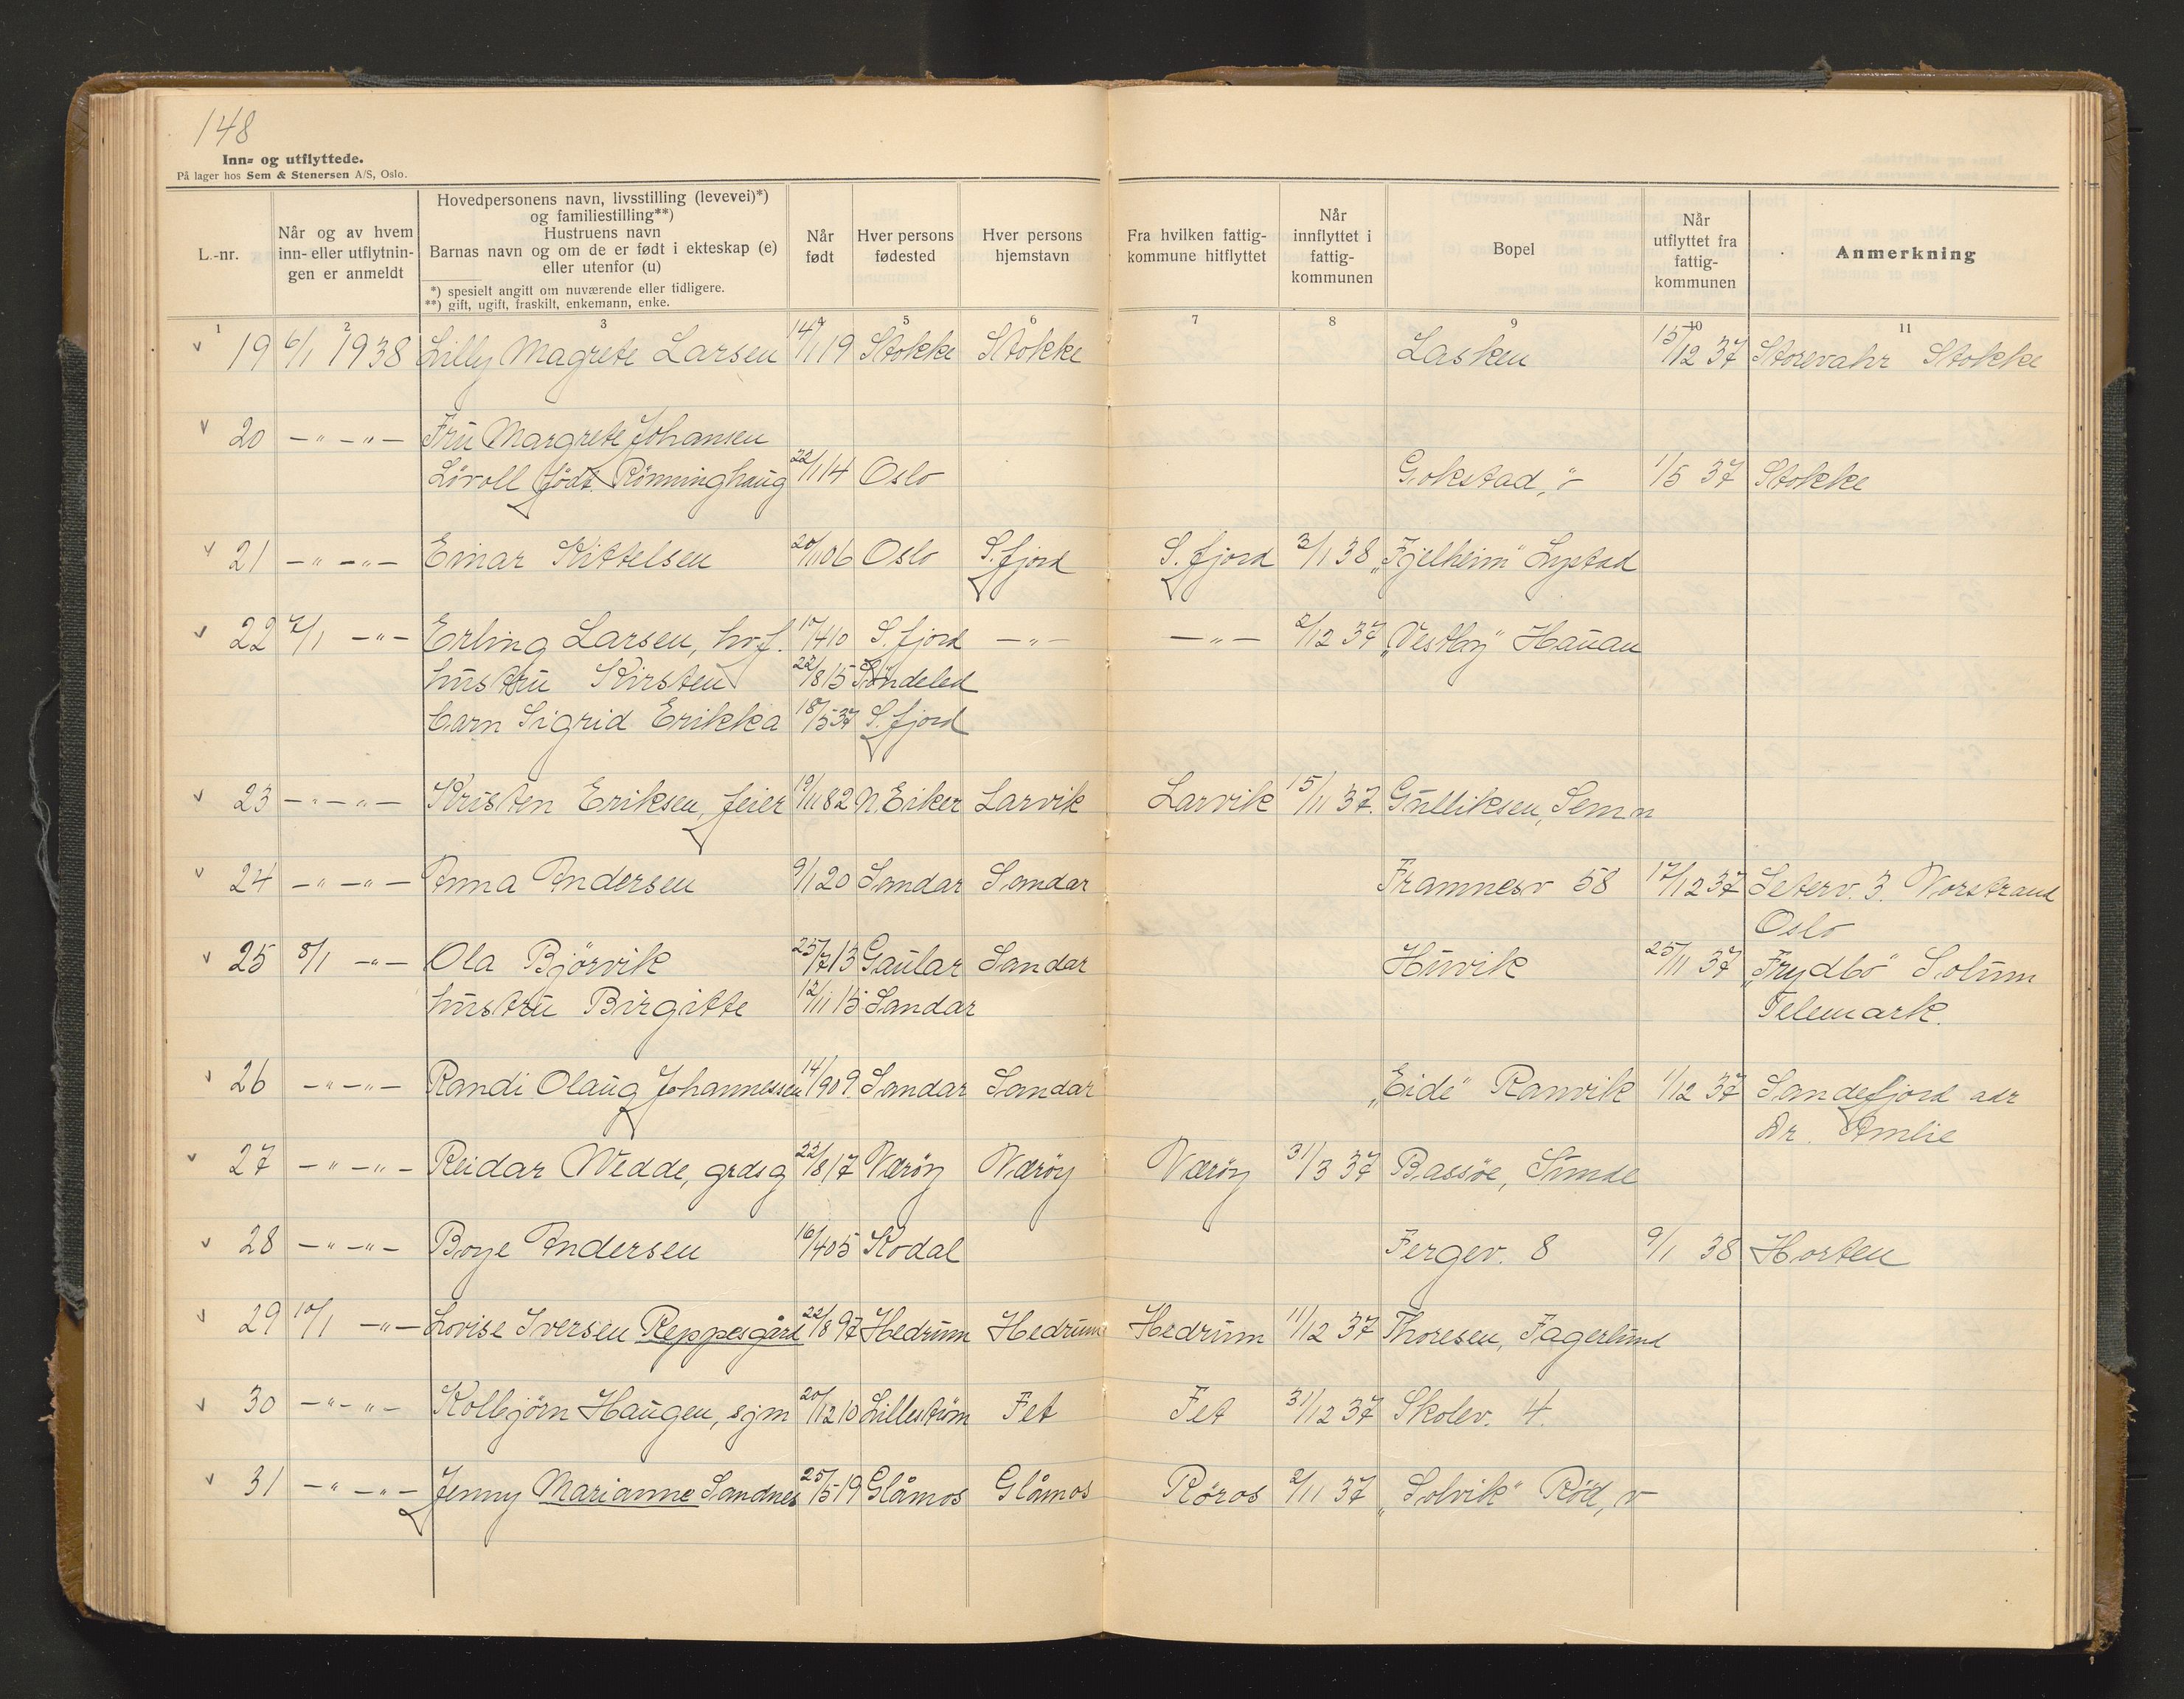 148
Inn- og utflyttede.
På lager hos Sem & Stenersen A/S, Oslo.
L.-nr.
Når og av hvem
inn- eller utflytnin-
gen er anmeldt
Hovedpersonens navn, livsstilling (levevei)*)
og familiestilling**)
Hustruens navn
Barnas navn og om de er født i ekteskap (e)
eller utenfor (u)
*) spesielt angitt om nuværende eller tidligere.
**) gift, ugift, fraskilt, enkemann, enke.
Når
født
Hver persons
fødested
Hver persons
hjemstavn
Fra hvilken fattig-
kommune hitflyttet
Når
innflyttet i
fattig-
kommunen
Bopel
Når
utflyttet fra
fattig-
kommunen
Anmerkning
1 2 3 4 5 6 7 8 9 10 11
v 19 6/1 1938 Lilly Magrete Larsen 14/1 19 Stokke Stokke Lasken 15/12 37 Storevahr Stokke
v 20 -"-"- Fru Margrete Johansen
Lövoll født Rönninghaug 22/1 14 Oslo Gokstad, "- 1/5 37 Stokke
v 21 -"-"- Einar Kittelsen 20/1 06 Oslo S.fjord S.fjord 3/1 38 "Fjelheim" Lystad
v 22 7/1 -"- Erling Larsen, hvf. 17/4 10 S.fjord -"- -"- 2/12 37 "Vestby" Hauan
hustru Kirsten 22/8 15 Söndeled
barn Sigrid Erikka 18/5 37 S.fjord
v 23 -"-"- Kristen Eriksen, feier 19/11 82 N.Eiker Larvik Larvik 15/11 37. Gulliksen, Sem n
v 24 -"-"- Anna Andersen 9/1 20 Sandar Sandar Framnesv 58 17/12 37 Seterv. 3. Norstrand
Oslo
v 25 8/1 -"- Ola Björvik 25/7 13 Gaular Sandar Huvik 25/11 37 "Frydbo" Solum
hustru Birgitte 12/11 15 Sandar Telemark.
v 26 -"-"- Randi Olaug Johannessen 14/9 09. Sandar Sandar "Eide" Ranvik 1/12 37 Sandefjord adr
Dr. Amlie
v 27 -"-"- Reidar Wedde, grdsg 22/8 17 Værøy Værøy Værøy 31/3 37 Bassöe, Sunde
v 28 -"-"- Boye Andersen 16/4 05 Kodal Fergev. 8 9/1 38 Horten
v 29 10/1 -"- Lovise Iversen Reppesgård 22/8 97 Hedrum Hedrum Hedrum 11/12 37 Thoresen, Fagerlund
v 30 -"-"- Kolbjörn Haugen, sjm 20/12 10 Lillestrøm Fet Fet 31/12 37 Skolev. 4.
v 31 -"-"- Jenny Marianne Sandnes 25/5 19 Glåmos Glåmos Røros 2/11 37 "Solvik" Rød, v